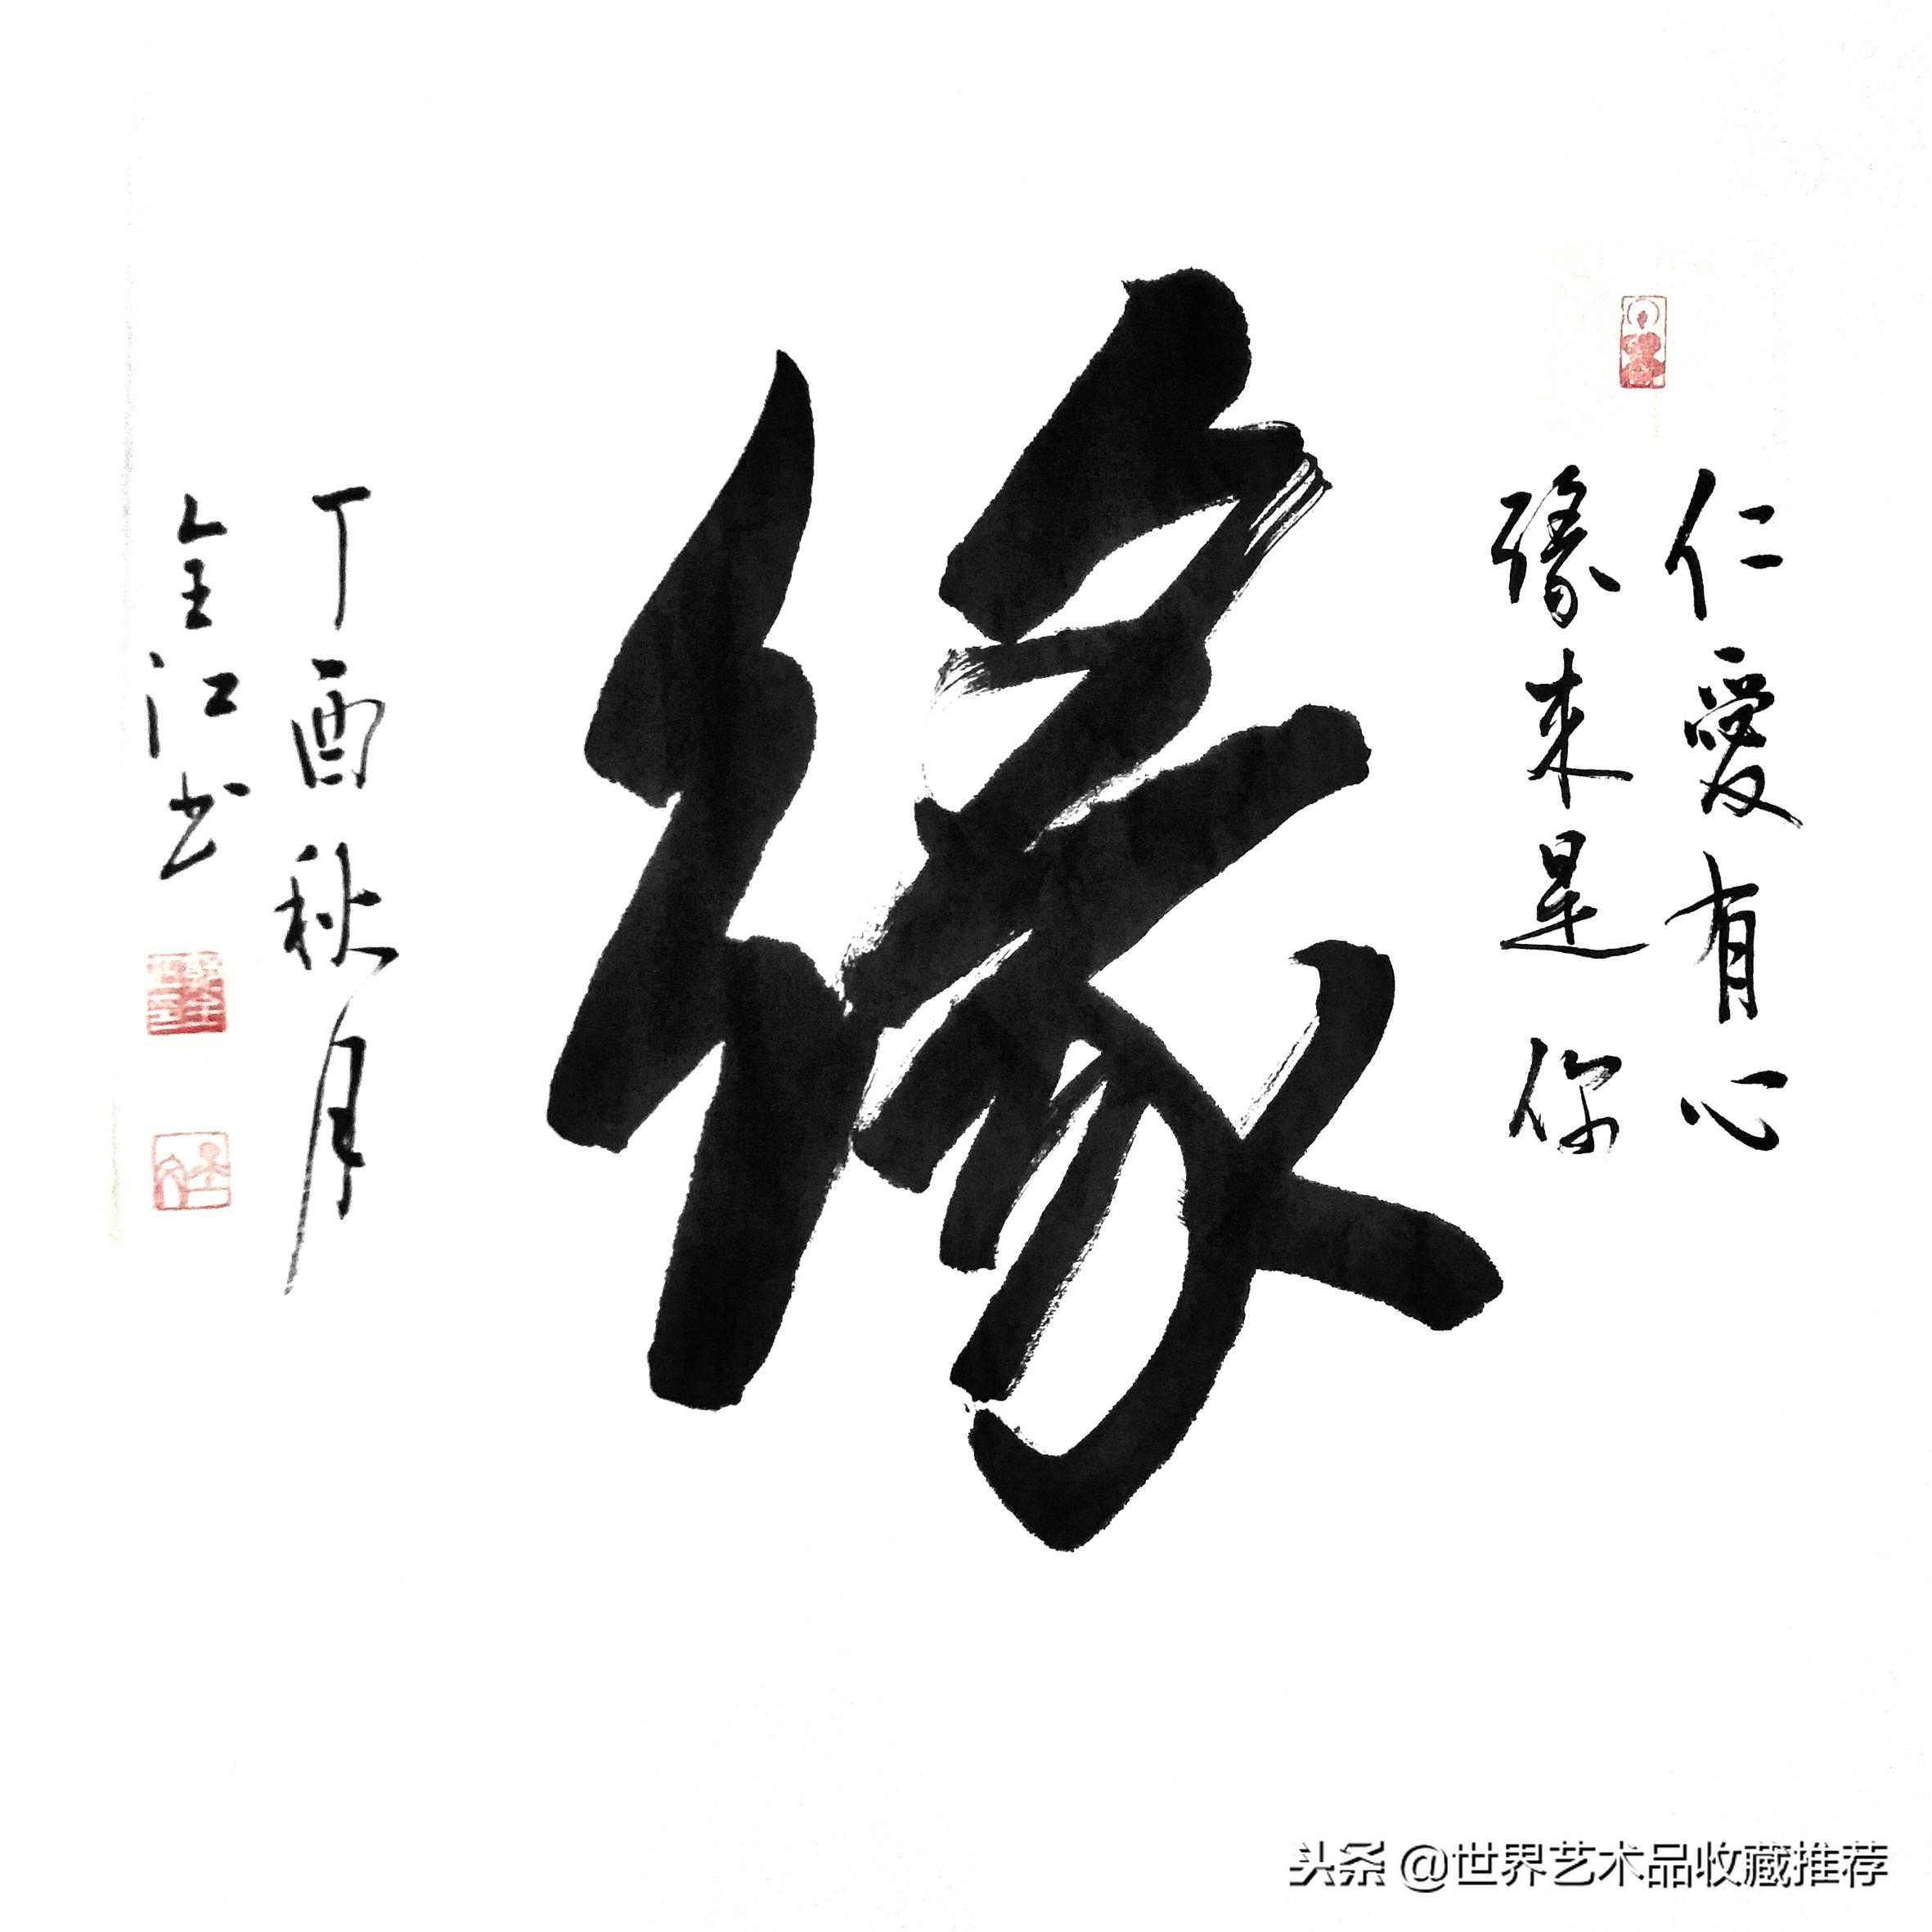 仁愛有心
緣来是你
緣
丁酉秋月
全江书
头条 @世界艺术品收藏推荐